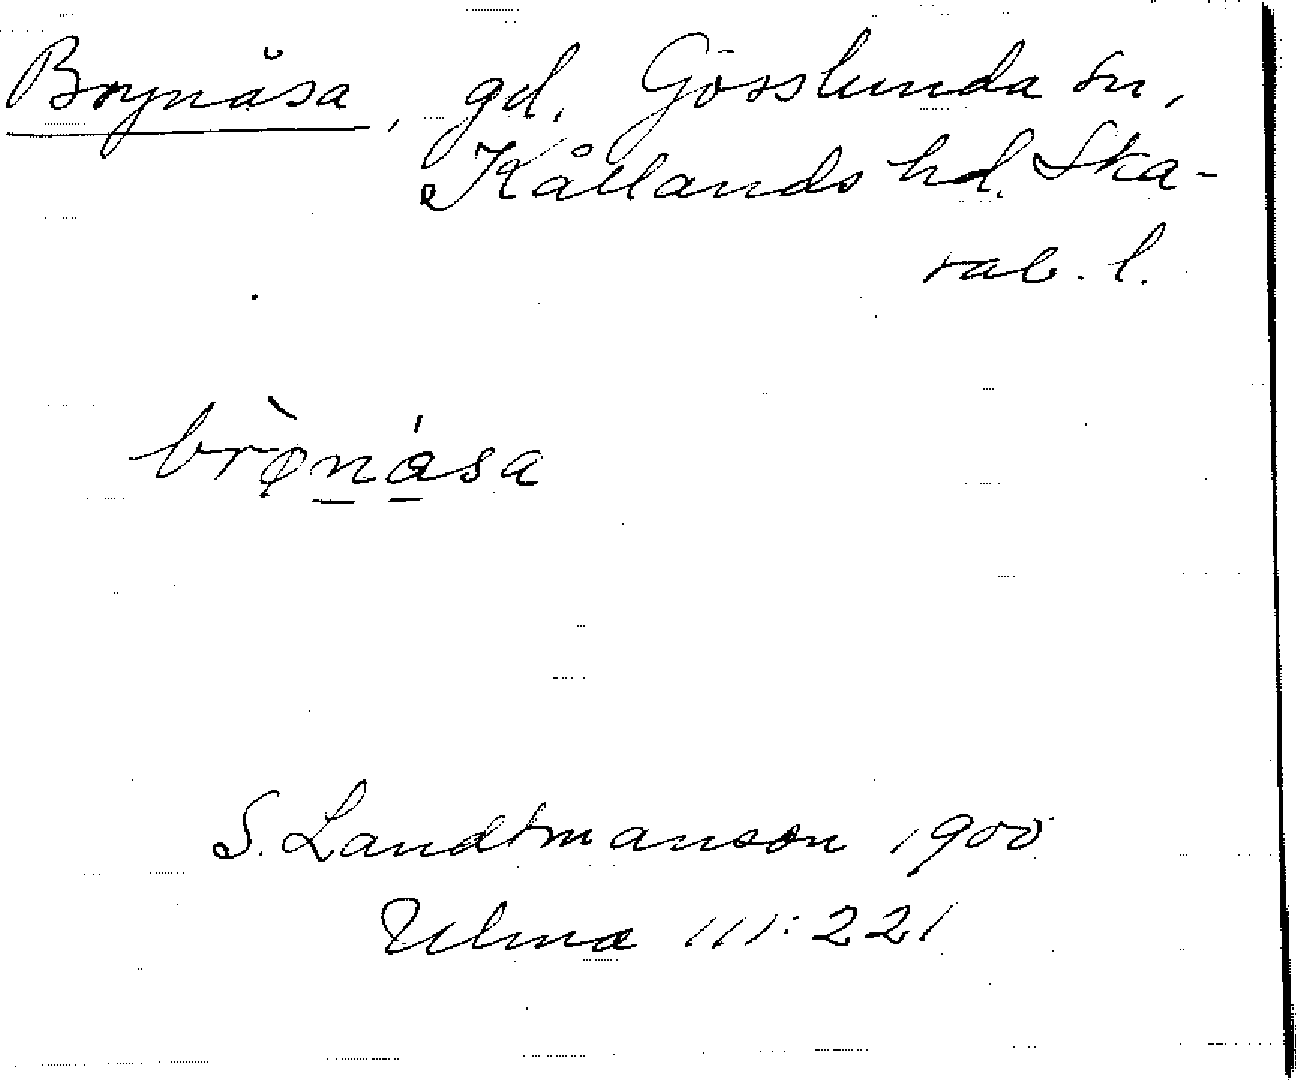 Brynåsa, gd. Gösslunda sn,
Kållands hd. Ska-
rab. l.
brø̀nása
S. Landtmanson 1900
Ulma 111:221